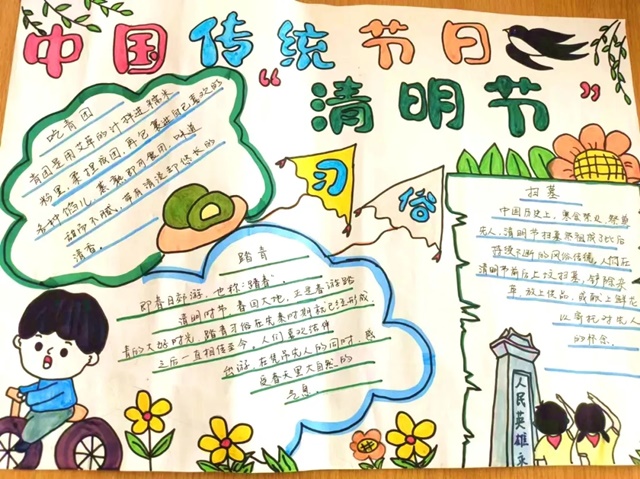 中国传统节日
“清明节”
习俗
吃青团
青团是用艾草的汁拌进糯米
粉里，揉捏成团，再包裹进自己喜欢的
各种馅儿，蒸熟即可食用，味道
甜而不腻，带有清淡却悠长的
清香。
踏青
即春日郊游，也称“踏春”。
清明时节，春回大地，正是春游踏
青的大好时光，踏青习俗在先秦时期就已经形成，
之后一直相传至今，人们喜欢结伴
出游，在凭吊先人的同时，感
受春天里大自然的
气息。
扫墓
中国历史上，寒食禁火，祭奠
先人，清明节扫墓祭祖成了此后
持续不断的风俗传统，人们在
清明节前后上坟扫墓，铲除杂
草，放上供品，或献上鲜花
以寄托对先人
的怀念。
人民英雄永